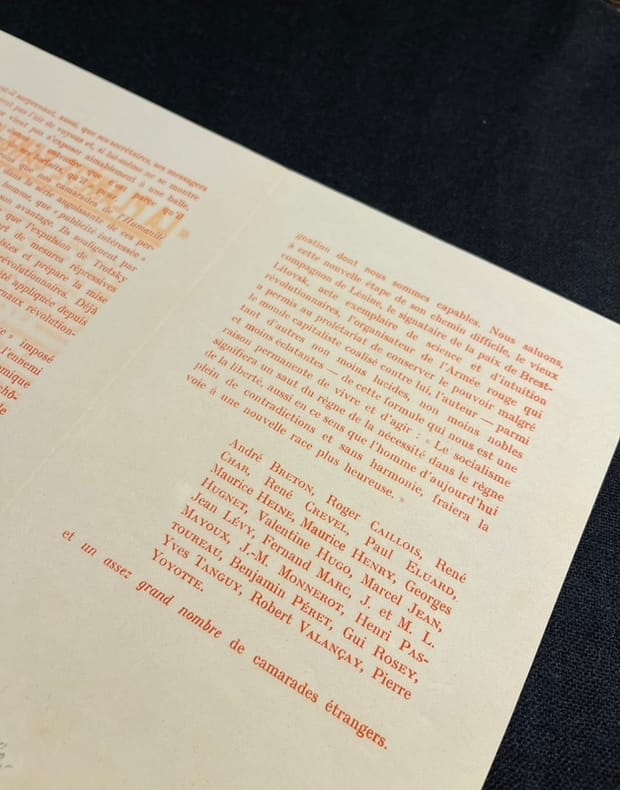 -il surprenant, aussi, que ses secrétaires, ses messagers
pas l'air de voyous et, si lui-même ne se montre
vient pas s'exposer aimablement à une balle
camarades de l'Humanité
dans la série angoissante de ces per-
homme, que « publicité intéressée »
son avantage. Ils soulignent par
que l'expulsion de Trotsky
de mesures répressives
et prépare la mise
révolutionnaires. Déjà
été appliquée depuis
journaux révolution-
» imposé
l'ennemi
gnation dont nous sommes capables. Nous saluons,
à cette nouvelle étape de son chemin difficile, le vieux
compagnon de Lénine, le signataire de la paix de Brest-
Litovsk, acte exemplaire de science et d'intuition
révolutionnaires, l'organisateur de l'Armée rouge qui
a permis au prolétariat de conserver le pouvoir malgré
le monde capitaliste coalisé contre lui, l'auteur — parmi
tant d'autres non moins lucides, non moins nobles
et moins éclatantes — de cette formule qui nous est une
raison permanente de vivre et d'agir : « Le socialisme
signifiera un saut du règne de la nécessité dans le règne
de la liberté, aussi en ce sens que l'homme d'aujourd'hui
plein de contradictions et sans harmonie, fraiera la
voie à une nouvelle race plus heureuse. »
André BRETON, Roger CAILLOIS, René
CHAR, René CREVEL, Paul ELUARD,
Maurice HEINE, Maurice HENRY, Georges
HUGNET, Valentine HUGO, Marcel JEAN,
Jean LÉVY, Fernand MARC, J. et M. L.
MAYOUX, J.-M. MONNEROT, Henri PAS-
TOUREAU, Benjamin PÉRET, Gui ROSEY,
Yves TANGUY, Robert VALANÇAY, Pierre
YOYOTTE.
et un assez grand nombre de camarades étrangers.